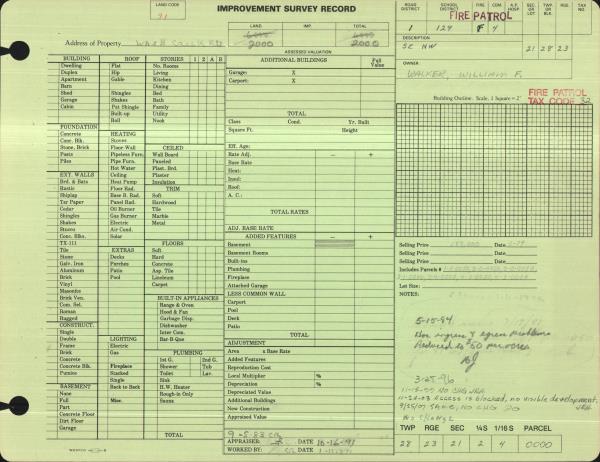 LAND CODE
91
IMPROVEMENT SURVEY RECORD
LAND IMP. TOTAL
2000 2000
Address of Property
ASSESSED VALUATION
ROAD DISTRICT SCHOOL DISTRICT FIRE CEM. A.P. HOSP SEC OR LOT TWP OR BLK RGE TAX NO
FIRE PATROL
1 124 F 4
SE NW 21 28 23
OWNER
WALKER, WILLIAM F.
FIRE PATROL
TAX CODE 32
Building Outline. Scale, 1 Square = 2'
BUILDING ROOF STORIES 1 2 A B
Dwelling Flat No. Rooms
Duplex Hip Living
Apartment Gable Kitchen
Barn Dining
Shed Shingles Bed
Garage Shakes Bath
Cabin Pot Shingle Family
Built-up Utility
Roll Nook
FOUNDATION
Concrete HEATING
Conc. Blk. Stoves CEILED
Stone, Brick Floor Wall Wall Board
Posts Pipeless Furn. Paneled
Piles Pipe Furn. Plast. Brd.
Hot Water Plaster
EXT. WALLS Ceiling Insulation
Brd. & Bats Heat Pump TRIM
Rustic Floor Rad. Soft
Shiplap Base B. Rad. Hardwood
Tar Paper Panel Rad. Tile
Cedar Oil Burner Marble
Shingles Gas Burner Metal
Shakes Electric
Stucco Air Cond.
Conc. Blks. Solar
TX-111 FLOORS
Tile EXTRAS Soft
Stone Decks Hard
Galv. Iron Porches Concrete
Aluminum Patio Asp. Tile
Brick Pool Linoleum
Vinyl Carpet
Masonite
Brick Ven. BUILT-IN APPLIANCES
Com. Sel. Range & Oven
Roman Hood & Fan
Rugged Garbage Disp.
CONSTRUCT. Dishwasher
Single Inter Com.
Double LIGHTING Bar-B-Que
Frame Electric
Brick Gas PLUMBING
Concrete 1st G. 2nd G.
Concrete Blk. Fireplace Shower Tub
Pumice Stacked Toilet Lav.
Single Sink
BASEMENT Back to Back H.W. Heater
None Rough-in Only
Full Misc. Suana
Part
Concrete Floor
Dirt Floor
Garage TOTAL
ADDITIONAL BUILDINGS Full Value
Garage: X
Carport: X
TOTAL
Class Cond. Yr. Built
Square Ft. Height
Eff. Age:
Rate Adj. − +
Base Rate
Heat:
Insul:
Roof:
A. C.:
TOTAL RATES
ADJ. BASE RATE
ADDED FEATURES − +
Basement
Basement Rooms
Built-ins
Plumbing
Fireplace
Attached Garage
LESS COMMON WALL
Carport
Pool
Deck
Patio
TOTAL
ADJUSTMENT
Area x Base Rate
Added Features
Reproduction Cost
Local Multiplier %
Depreciation %
Depreciated Value
Additional Buildings
New Construction
Appraised Value
9-5-83
APPRAISER DATE 10-16-91
WORKED BY DATE
Selling Price
Selling Price
Includes Parcels #
Lot Size:
NOTES:
5-15-84
Non ingress & egress problems
Reduced to $50 per acre
3-25-96
11-15-00 NO CHG
11-24-03 Access is blocked, no visible development.
9/25/07 SAME, NO CHG
TWP RGE SEC ¼S 1/16S PARCEL
28 23 21 2 4 0000